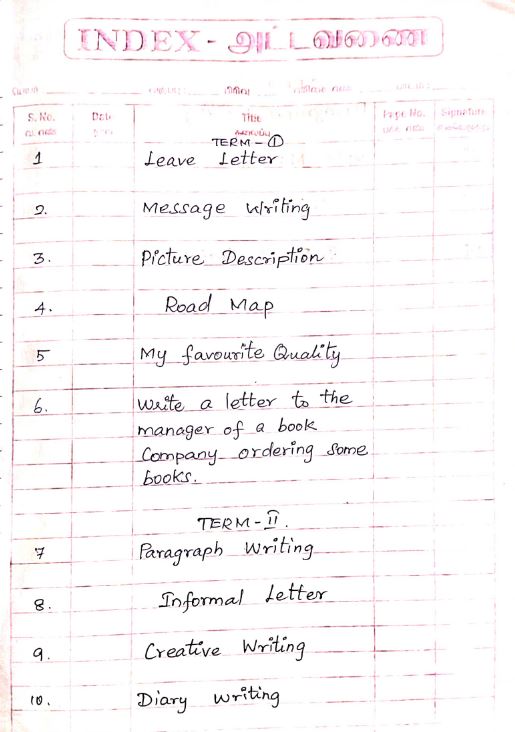 INDEX - அட்டவணை
S. No. Date Title Page No. Signature
TERM - I
1 Leave Letter
2. Message Writing
3. Picture Description
4. Road Map
5 My favourite Quality
6. Write a letter to the
manager of a book
Company ordering some
books.
TERM - II.
7 Paragraph Writing
8. Informal Letter
9. Creative Writing
10. Diary Writing